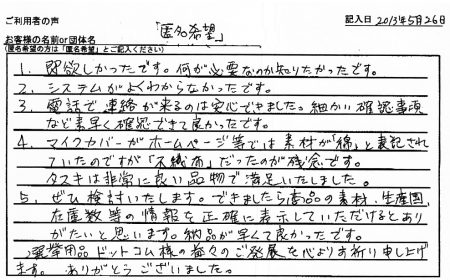 ご利用者の声
記入日 2013年5月26日
お客様の名前or団体名
「匿名希望」
(匿名希望の方は「匿名希望」とご記入ください)
1. 即欲しかったです。何が必要なのか知りたかったです。
2. システムがよくわからなかったです。
3. 電話で連絡が来るのは安心できました。細かい確認事項
など素早く確認できて良かったです。
4. マイクカバーがホームページ等では素材が「綿」と表記され
ていたのですが「不織布」だったのが残念です。
タスキは非常に良い品物で満足いたしました。
5. ぜひ検討いたします。できましたら商品の素材、生産国、
在庫数等の情報を正確に表示していただけるとあり
がたいと思います。納品が早くて良かったです。
選挙用品ドットコム様の益々のご発展を心よりお祈り申し上げ
ます。 ありがとうございました。